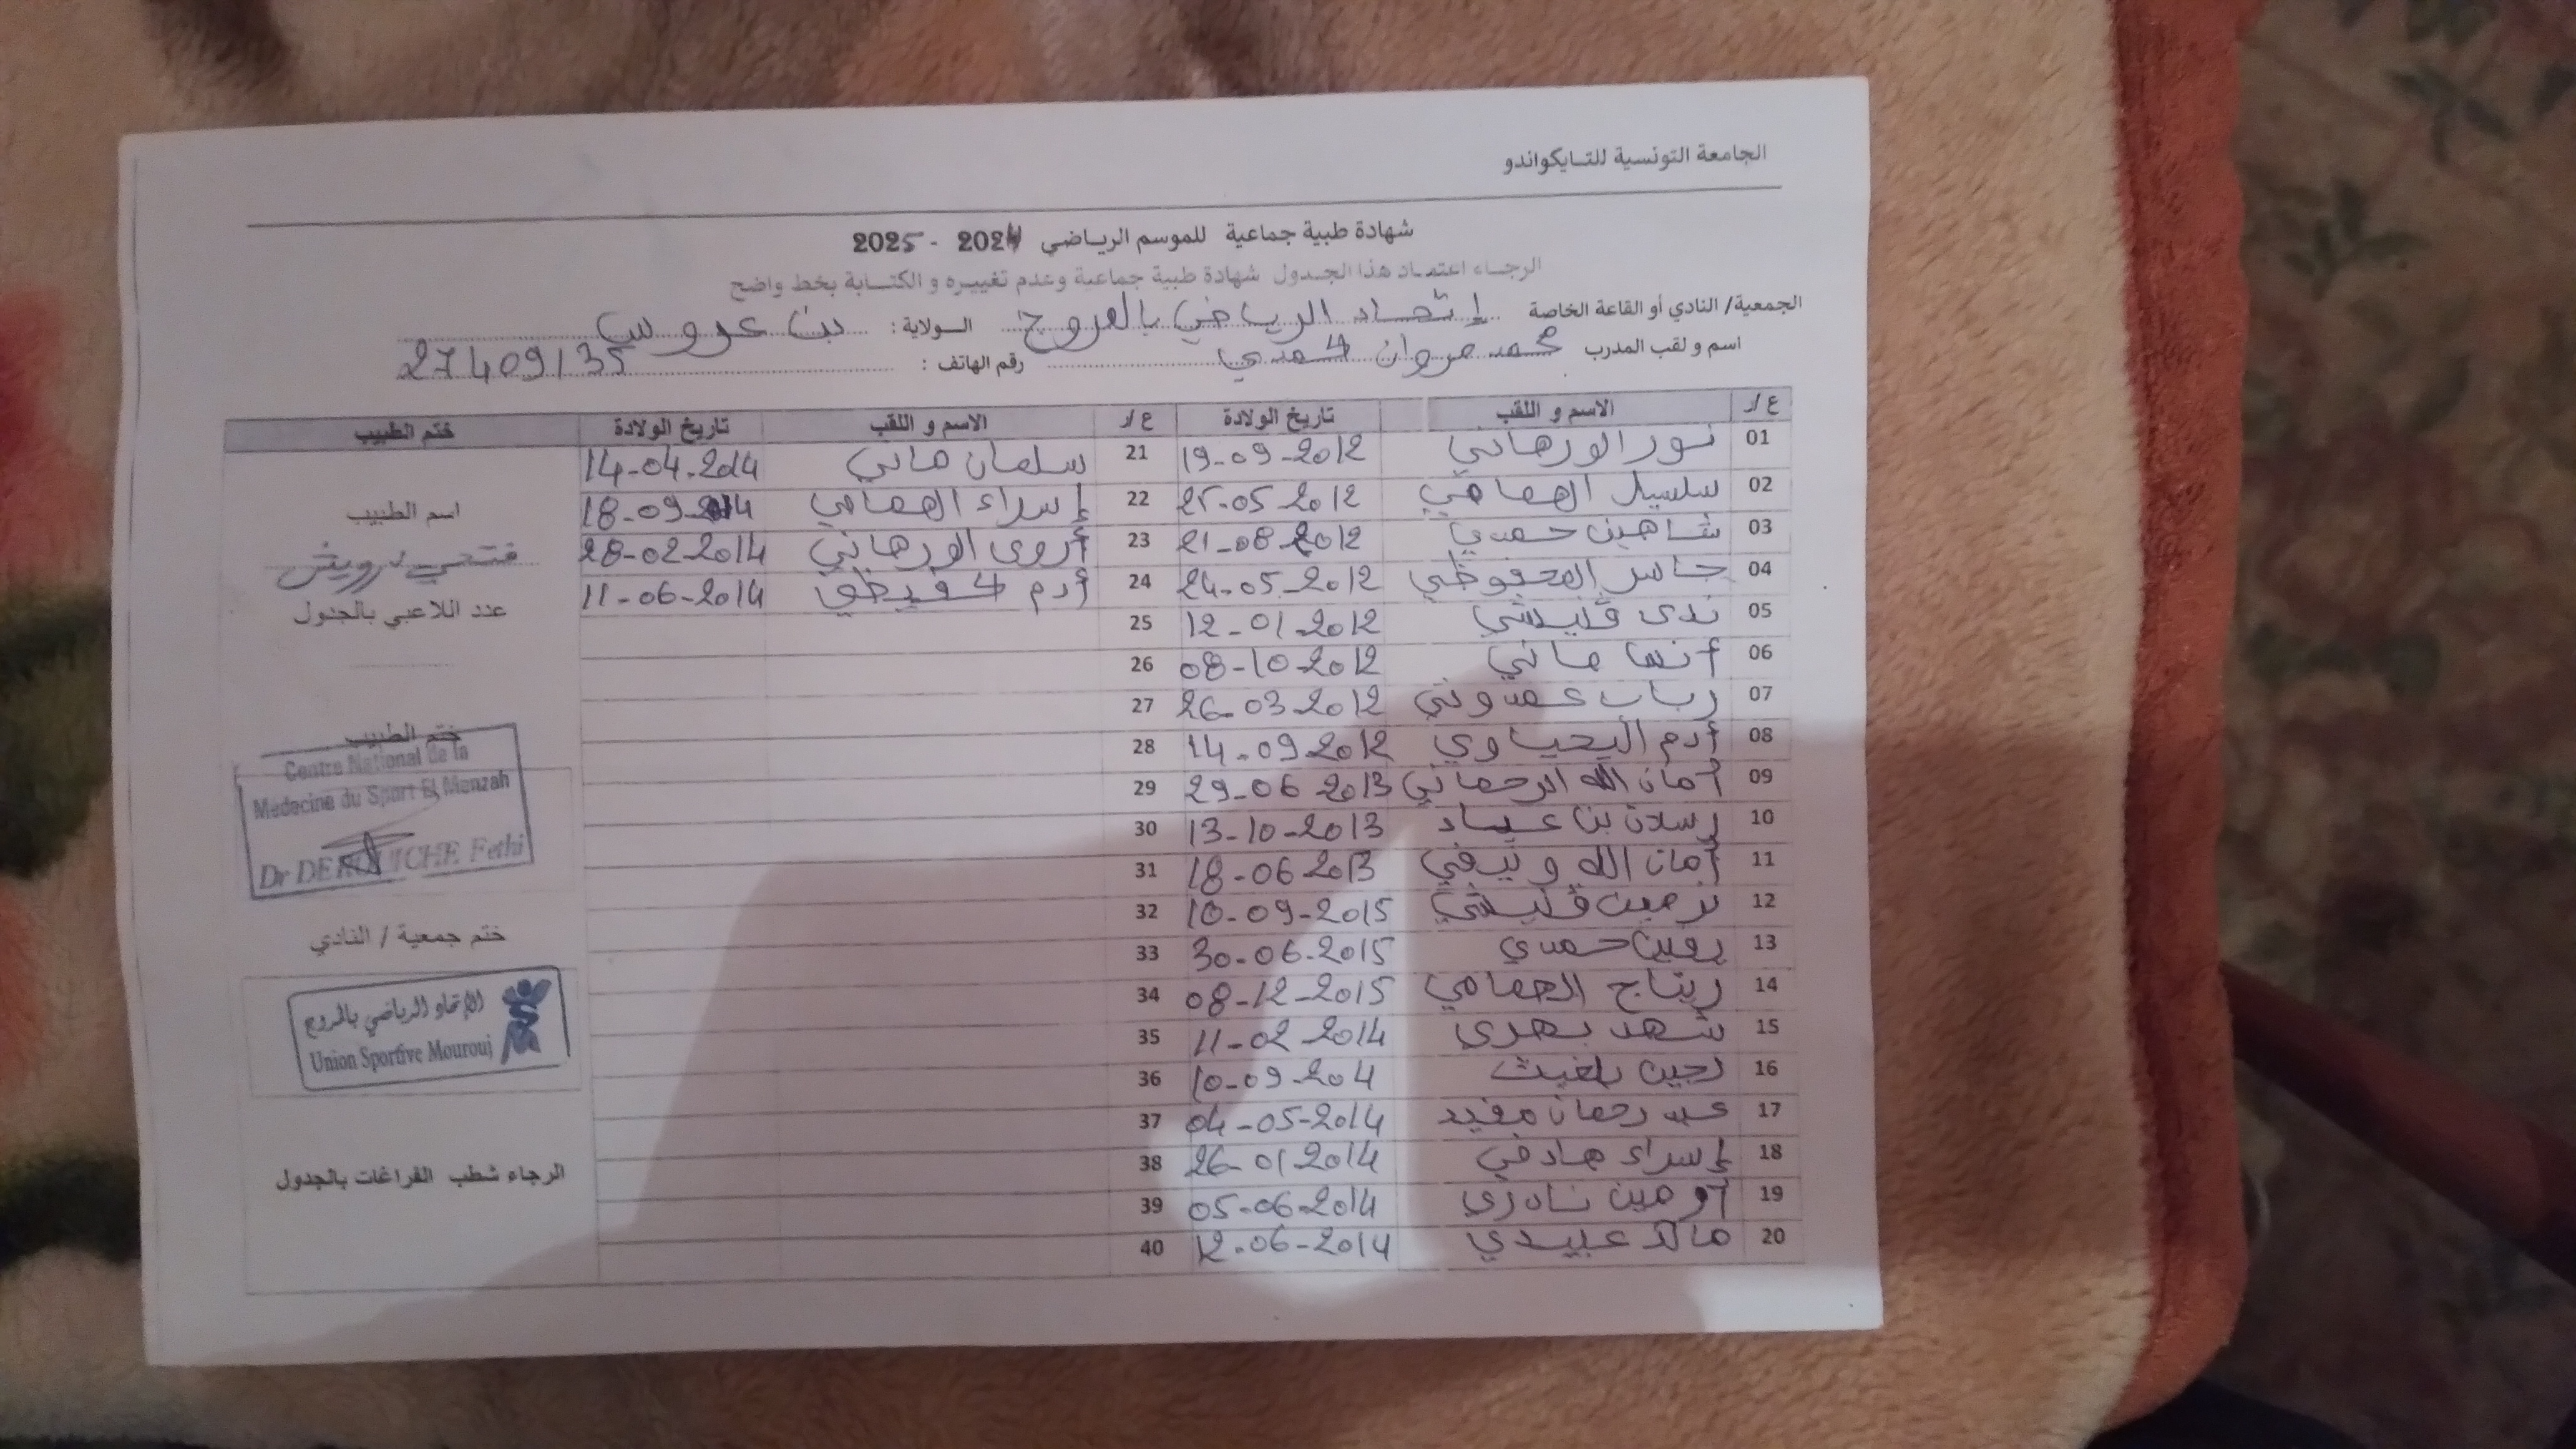 الجامعة التونسية للتايكواندو
شهادة طبية جماعية للموسم الرياضي 2024 - 2025
الرجاء اعتماد هذا الجدول شهادة طبية جماعية وعدم تغييره و الكتابة بخط واضح
الجمعية/ النادي أو القاعة الخاصة إتحاد الرياضي بالمروج الولاية: بن عروس
اسم و لقب المدرب محمد مروان حمدي رقم الهاتف: 27409135
ع/ر الاسم و اللقب تاريخ الولادة ع/ر الاسم و اللقب تاريخ الولادة ختم الطبيب
01 نور الورهاني 19-09-2012 21 سلمان ماني 14-04-2014
02 سلسبيل الهمامي 25-05-2012 22 إسراء الهمامي 18-09-2014
03 شاهين حمدي 21-08-2012 23 أروى الورهاني 28-02-2014
04 جاسر المحفوظي 24-05-2012 24 أدم حفيظي 11-06-2014
05 ندى قليشي 12-01-2012 25
06 أنس ماني 08-10-2012 26
07 رباب عمدوني 26-03-2012 27
08 أدم اليحياوي 14-09-2012 28
09 أمان الله الرحماني 29-06-2013 29
10 رسلان بن عياد 13-10-2013 30
11 أمان الله ونيفي 18-06-2013 31
12 نرمين قليشي 10-09-2015 32
13 حمدي 30-06-2015 33
14 ريتاج الهمامي 08-12-2015 34
15 شهد بهري 11-02-2014 35
16 لجين بلغيث 10-09-204 36
17 عبد رحمان مفيد 04-05-2014 37
18 إسراء هادفي 26-01-2014 38
19 نادري 05-06-2014 39
20 مالك عبيدي 12-06-2014 40
اسم الطبيب
فتحي درويش
عدد اللاعبي بالجدول
ختم الطبيب
Centre National de la
Médecine du Sport El Menzah
Dr DEROUICHE Fethi
ختم جمعية / النادي
الإتحاد الرياضي بالمروج
Union Sportive Mourouj
الرجاء شطب الفراغات بالجدول